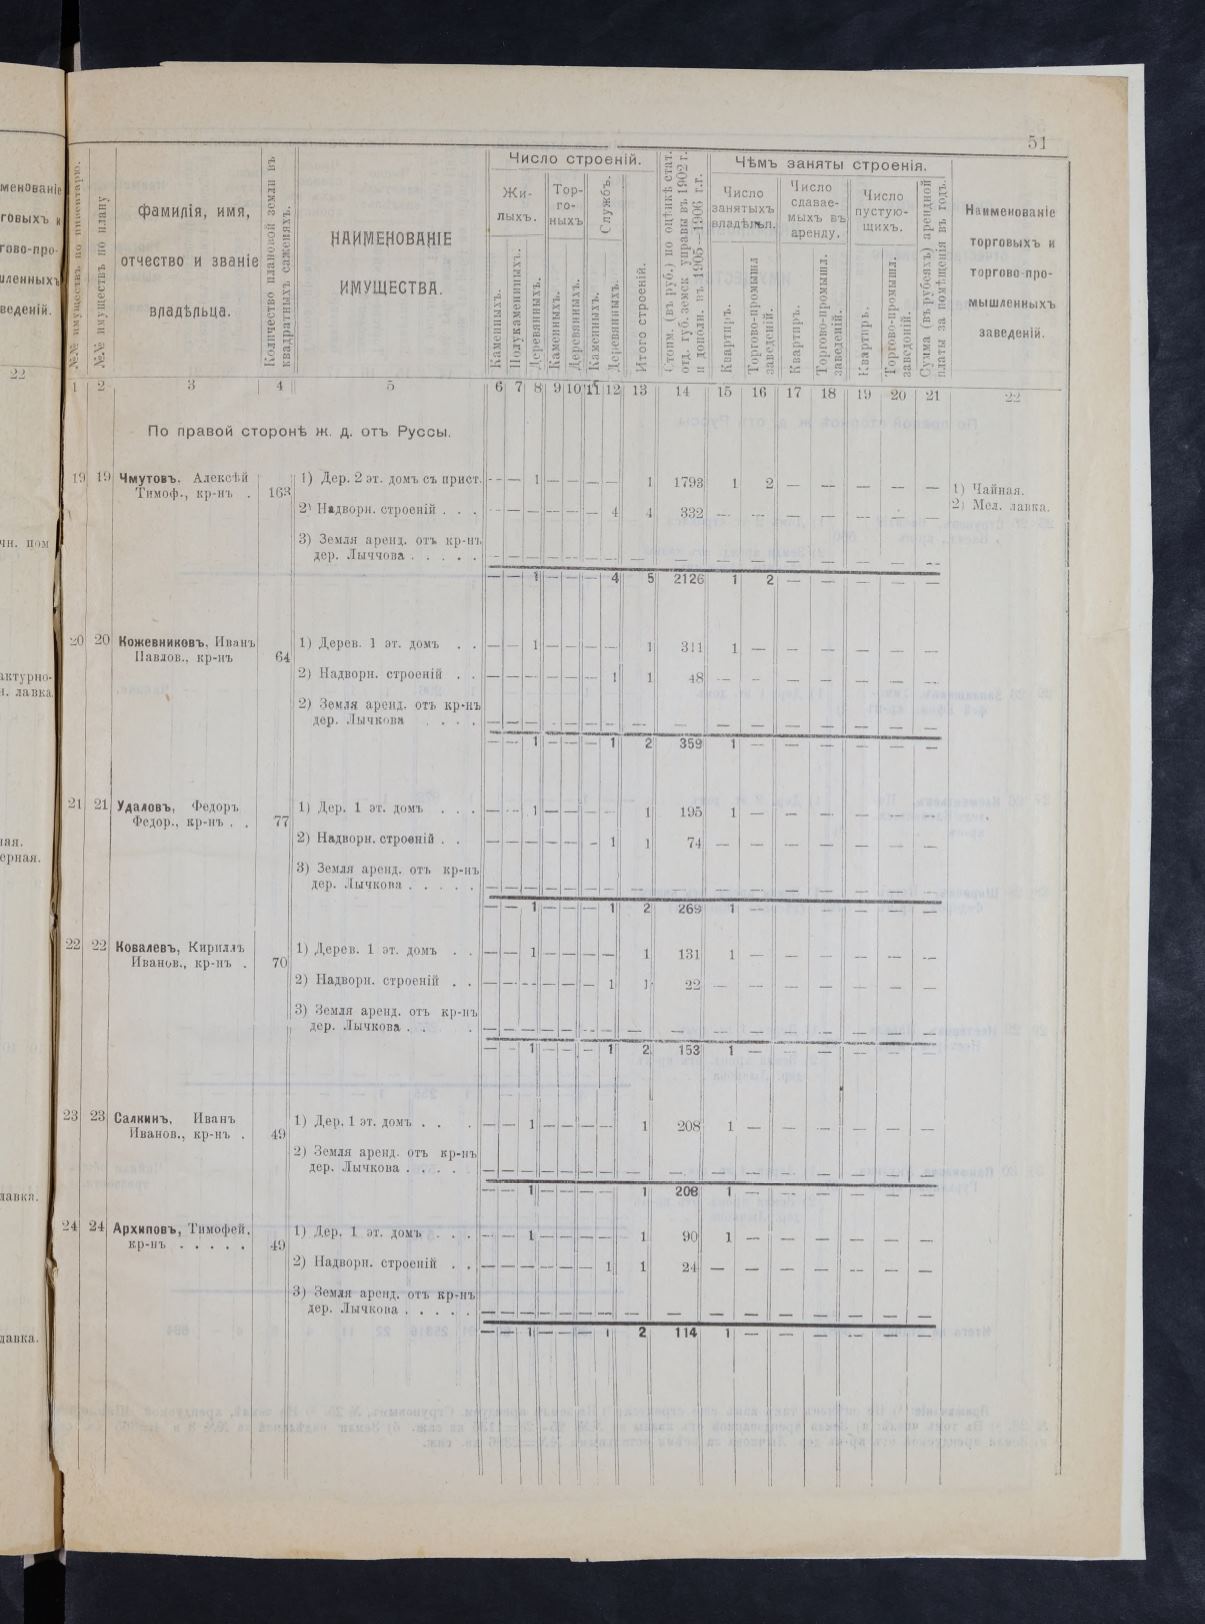 51
менованіе
говыхъ и
гово-про-
шленныхъ
веденій.
22
чн. пом
актурно-
лавка.
ная.
ерная.
лавка.
лавка.
№№ имуществъ по инвентарю.
№№ имуществъ по плану
фамилія, имя,
отчество и званіе
владѣльца.
Количество плановой земли въ
квадратныхъ саженяхъ.
НАИМЕНОВАНІЕ
ИМУЩЕСТВА.
Число строеній.
Жи-
лыхъ.
Тор-
го-
ныхъ
Службъ.
Каменныхъ.
Полукаменныхъ.
Деревянныхъ.
Каменныхъ.
Деревянныхъ.
Каменныхъ.
Деревянныхъ.
Итого строеній.
Стоим. (въ руб.) по оцѣнкѣ стат.
отд. губ. земск управы въ 1902 г.
и дополн. въ 1905—1906 г.г.
Чѣмъ заняты строенія.
Число
занятыхъ
владѣльц.
Число
сдавае-
мыхъ въ
аренду.
Число
пустую-
щихъ.
Квартиръ.
Торгово-промышл
заведеній.
Квартиръ.
Торгово-промышл.
заведеній.
Квартиръ.
Торгово-промышл.
заведоній.
Сумма (въ рубляхъ) арендной
платы за помѣщенія въ годъ.
Наименованіе
торговыхъ и
торгово про-
мышленныхъ
заведеній.
1 2 3 4 5 6 7 8 9 10 11 12 13 14 15 16 17 18 19 20 21 22
По правой сторонѣ ж. д. отъ Руссы.
19 19 Чмутовъ. Алексѣй 1) Дер. 2 эт. домъ съ прист. — — 1 — — — — 1 1793 1 2 — — — — — 1) Чайная.
Тимоф., кр-нъ . 163
2) Мел. лавка.
2) Надворн. строеній . . . — — — — — — 4 4 332 — — — — — — —
3) Земля аренд. отъ кр-нъ
дер. Лыччова . . . . . — — — — — — — — — — — — — — — —
— — 1 — — — 4 5 2126 1 2 — — — — —
20 20 Кожевниковъ, Иванъ 1) Дерев. 1 эт. домъ . . — — 1 — — — — 1 311 1 — — — — — —
Павлов., кр-нъ 64
2) Надворн. строеній . . — — — — — — 1 1 48 — — — — — — —
2) Земля аренд. отъ кр-нъ
дер. Лычкова . . . . — — — — — — — — — — — — — — — —
— — 1 — — — 1 2 359 1 — — — — — —
21 21 Удаловъ, Федоръ 1) Дер. 1 эт. домъ . . . — — 1 — — — — 1 195 1 — — — — — —
Федор., кр-нъ . . 77
2) Надворн. строеній . . — — — — — — 1 1 74 — — — — — — —
3) Земля аренд. отъ кр-нъ
дер. Лычкова . . . . . — — — — — — — — — — — — — — — —
— — 1 — — — 1 2 269 1 — — — — — —
22 22 Ковалевъ, Кириллъ 1) Дерев. 1 эт. домъ . . — — 1 — — — — 1 131 1 — — — — — —
Иванов., кр-нъ . 70
2) Надворн. строеній . . — — — — — — 1 1 22 — — — — — — —
3) Земля аренд. отъ кр-нъ
дер. Лычкова . . . — — — — — — — — — — — — — — — —
— — 1 — — — 1 2 153 1 — — — — — —
23 23 Салкинъ, Иванъ 1) Дер. 1 эт. домъ . . . — — 1 — — — — 1 208 1 — — — — — —
Иванов., кр-нъ . 49
2) Земля аренд. отъ кр-нъ
дер. Лычкова . . . . . — — — — — — — — — — — — — — — —
— — 1 — — — — 1 208 1 — — — — — —
24 24 Архиповъ, Тимофей, 1) Дер. 1 эт. домъ . . . — — 1 — — — — 1 90 1 — — — — — —
кр-нъ . . . . . 49
2) Надворн. строеній . . — — — — — — 1 1 24 — — — — — — —
3) Земля аренд. отъ кр-нъ
дер. Лычкова . . . . . — — — — — — — — — — — — — — — —
— — 1 — — — 1 2 114 1 — — — — — —